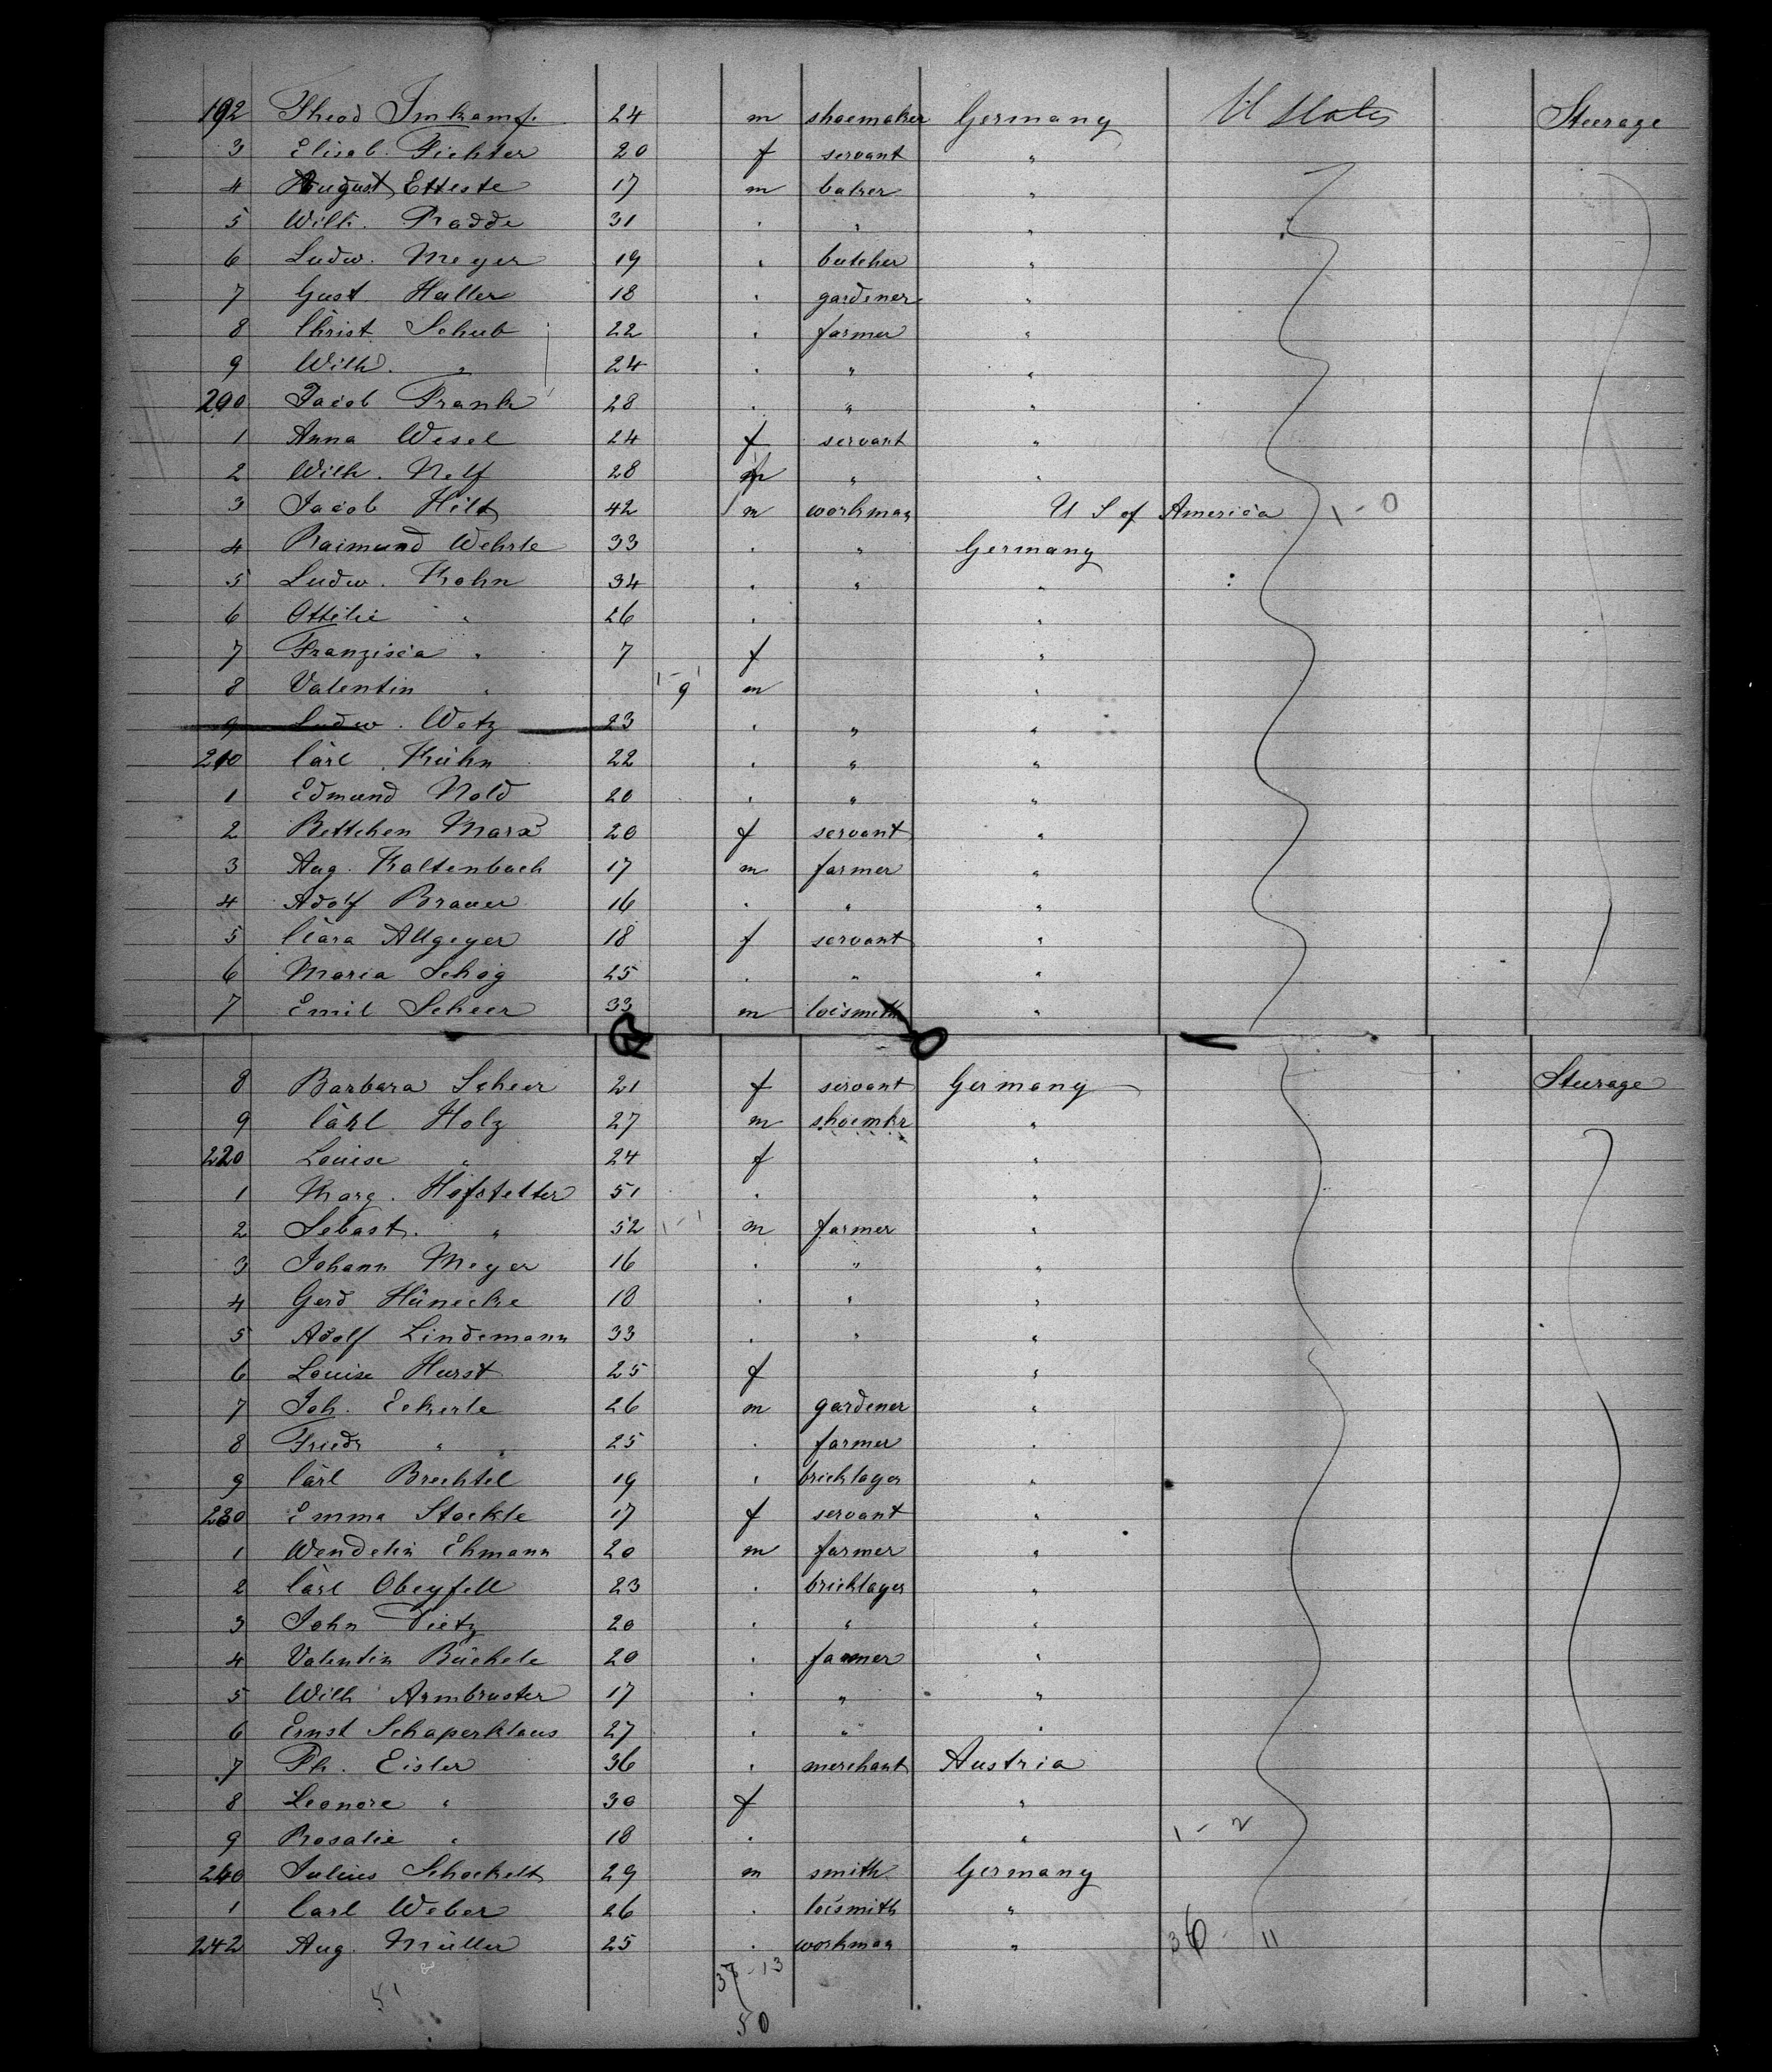 192 Theod Imkamp. 24 m shoemaker Germany U States Steerage
3 Elisab. Fichter 20 f servant "
4 August Etteste 17 m baker "
5 Wilh. Radde 31 " " "
6 Ludw. Meyer 19 " butcher "
7 Gust Haller 18 " gardener "
8 Christ Schub 22 " farmer "
9 Wilh. " 24 " " "
200 Jacob Frank 28 " " "
1 Anna Wesel 24 f servant "
2 Wilh. Nelf 28 m " "
3 Jacob Hilt 42 m workman U S of America 1 - 0
4 Raimund Wehrle 33 " " Germany
5 Ludw. Krohn 34 " " "
6 Ottilie " 26 " "
7 Franzisca " 7 f "
8 Valentin " 9 m " 1 - 1
9 Ludw. Wetz 23 " " "
210 Carl Kühn 22 " " "
1 Edmund Nold 20 " " "
2 Bettchen Marx 20 f servant "
3 Aug. Kaltenbach 17 m farmer "
4 Adolf Brauer 16 " " "
5 Clara Allgeyer 18 f servant "
6 Maria Schög 25 " " "
7 Emil Scheer 33 m locsmith "
8 Barbara Scheer 21 f servant Germany Steerage
9 Carl Holz 27 m shoemkr "
220 Louise " 24 f "
1 Marg. Hofstetter 51 " "
2 Sebast. " 52 1 - 1 m farmer "
3 Johann Meyer 16 " " "
4 Gerd Hünecke 18 " " "
5 Adolf Lindemann 33 " " "
6 Louise Hurst 25 f "
7 Joh. Eckerle 26 m gardener "
8 Friedr " 25 " farmer "
9 Carl Brechtel 19 " bricklayer "
230 Emma Stockle 17 f servant "
1 Wendelin Ehmann 20 m farmer "
2 Carl Obeyfell 23 " bricklayer "
3 John Dietz 20 " " "
4 Valentin Büchele 20 " farmer "
5 Wilh Armbruster 17 " " "
6 Ernst Schaperklaus 27 " " "
7 Ph. Eisler 36 " merchant Austria
8 Leonore " 30 f "
9 Rosalie " 18 " " 1 - 2
240 Julius Schockelt 29 m smith Germany
1 Carl Weber 26 " locsmith "
242 Aug. Müller 25 " workman " 36 11
37 - 13
51
50